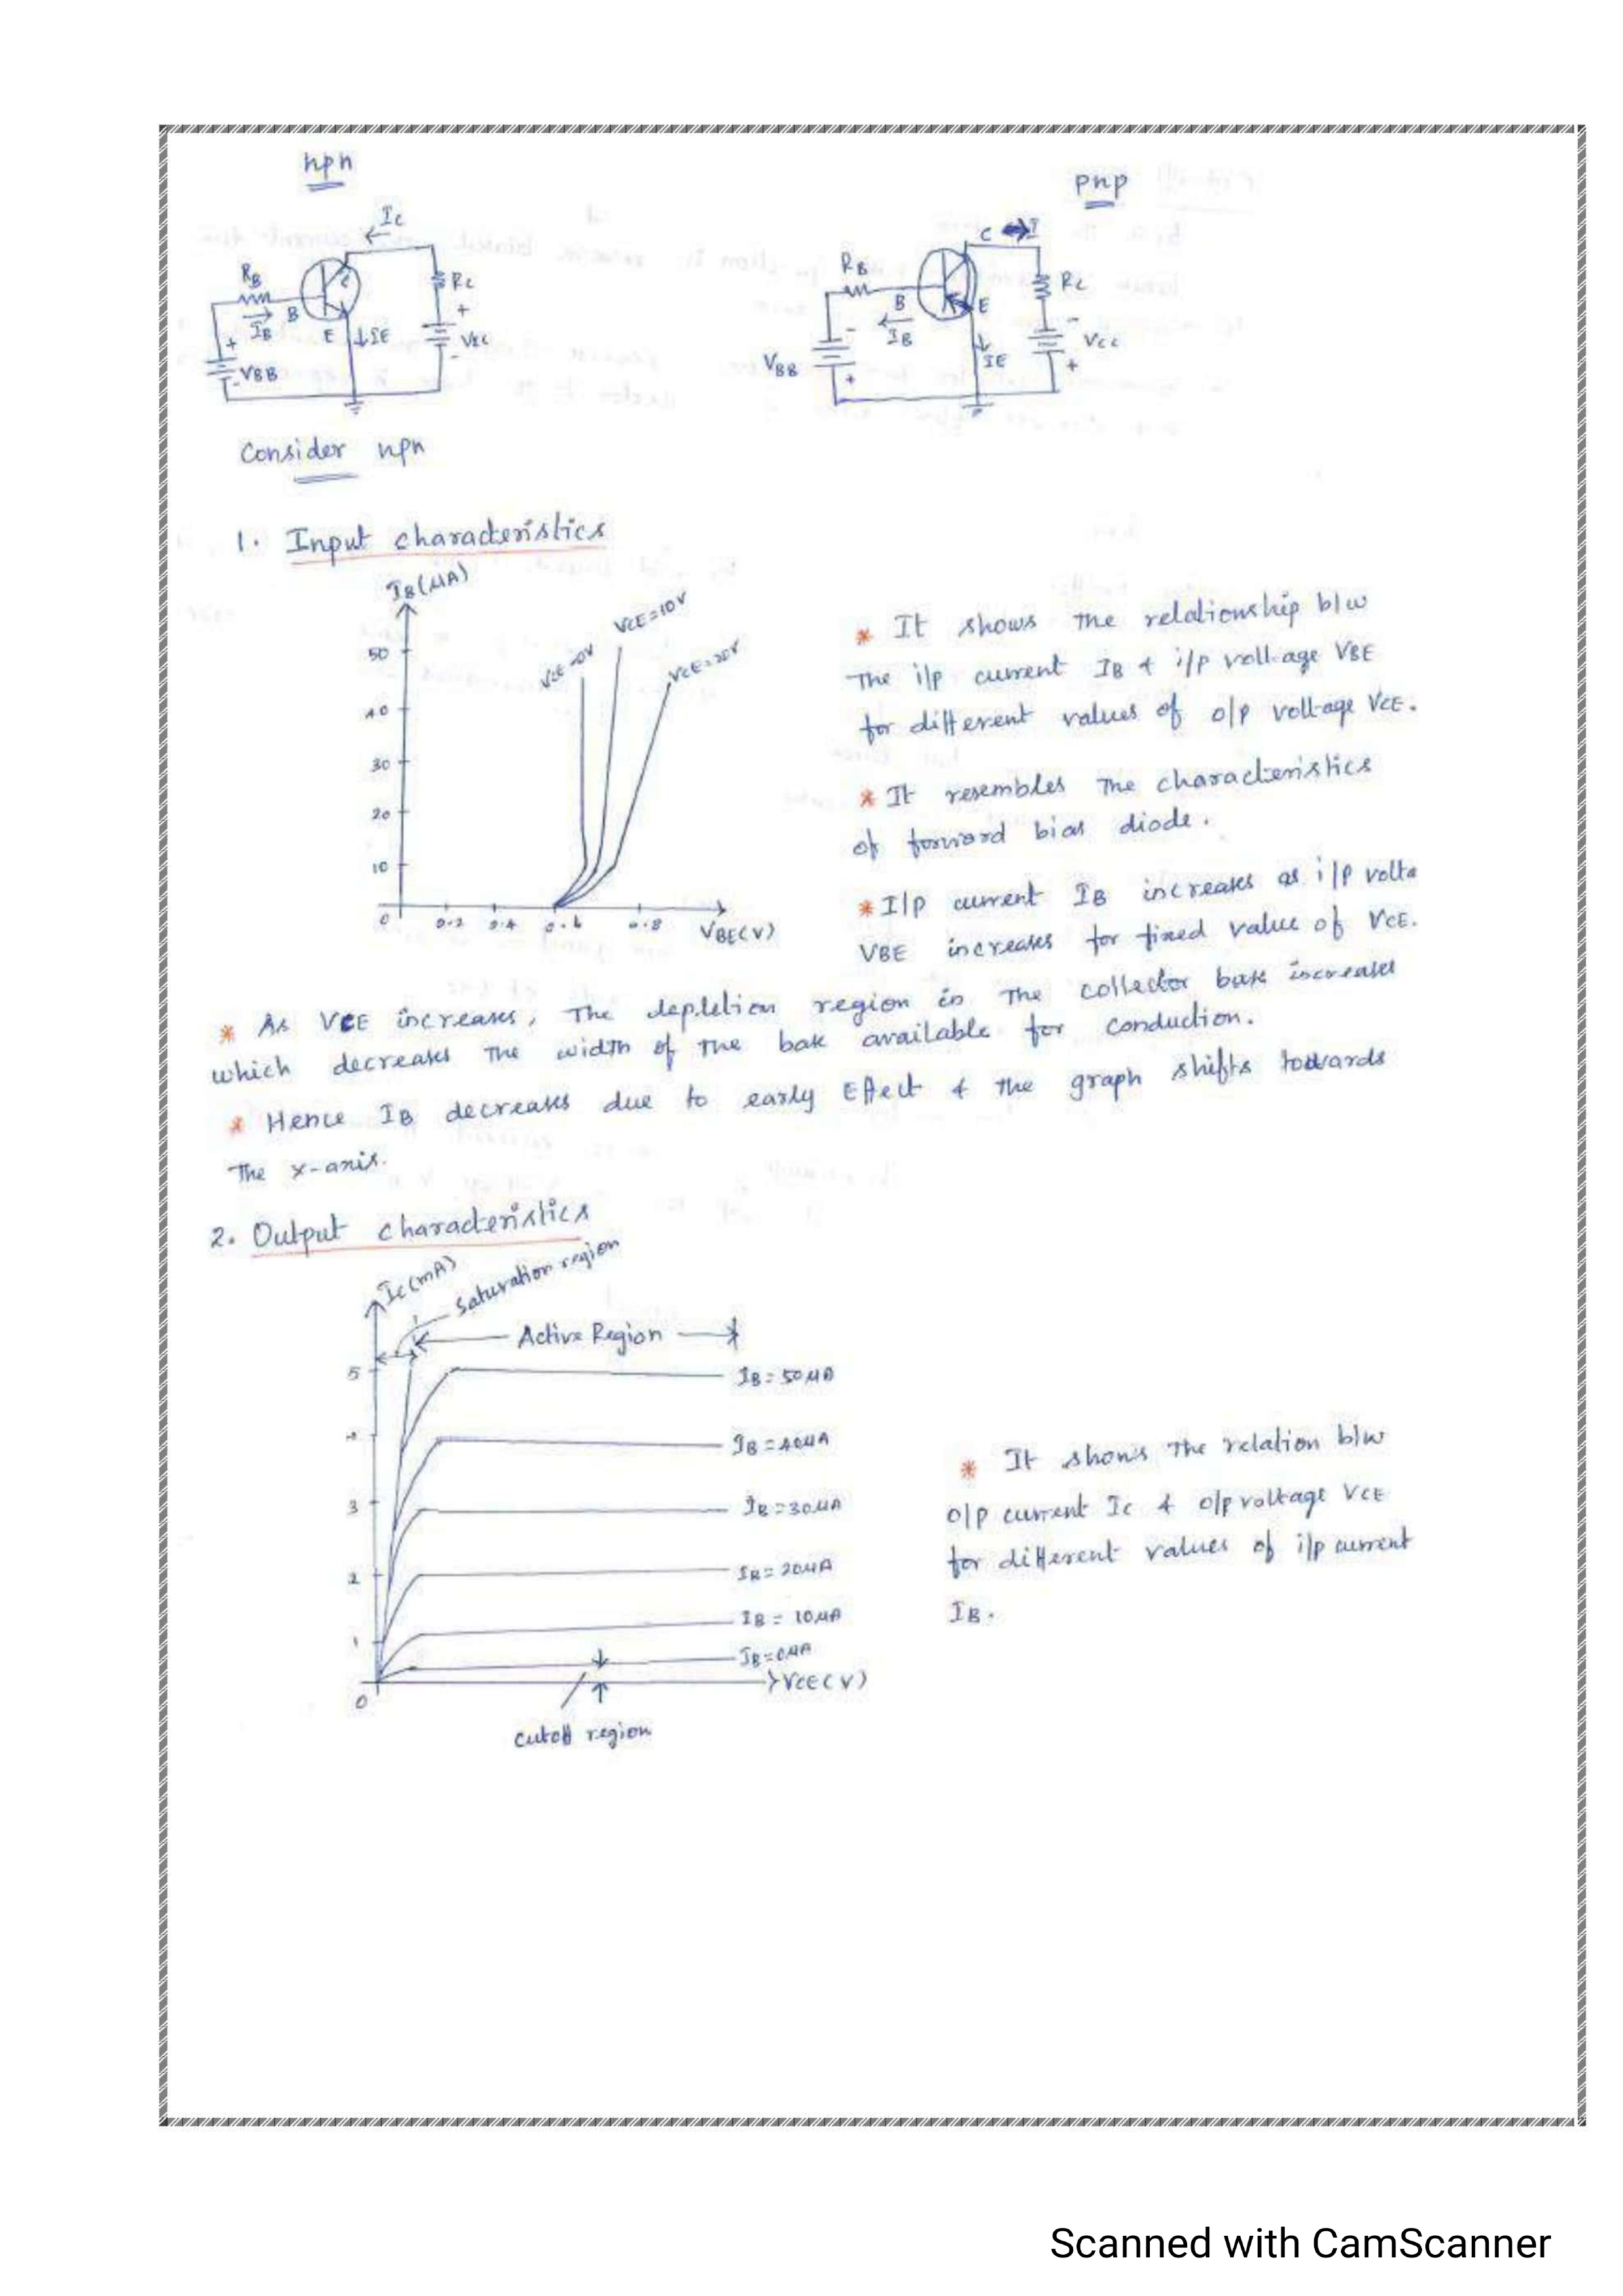 npn
pnp
IC
RB
B
IB
E
IE
RC
+
VCC
-
+
VBB
-
C
I
RB
B
IB
E
IE
RC
-
VCC
+
VBB
-
+
Consider npn
1. Input characteristics
IB(µA)
VCE=10V
50
40
30
20
10
0
0.2
0.4
0.6
0.8
VBE(V)
* It shows the relationship b/w
the i/p current IB & i/p voltage VBE
for different values of o/p voltage VCE.
* It resembles the characteristics
of forward bias diode.
* I/p current IB increases as i/p volta
VBE increases for fixed value of VCE.
* As VCE increases, the depletion region in the collector base increases
which decreases the width of the base available for conduction.
* Hence IB decreases due to early Effect & the graph shifts towards
the x-axis.
2. Output characteristics
IC(mA)
Saturation region
Active Region
5
3
2
1
0
IB = 50µA
IB = 40µA
IB = 30µA
IB = 20µA
IB = 10µA
IB = 0µA
VCE(V)
cutoff region
* It shows the relation b/w
o/p current Ic & o/p voltage VCE
for different values of i/p current
IB.
Scanned with CamScanner